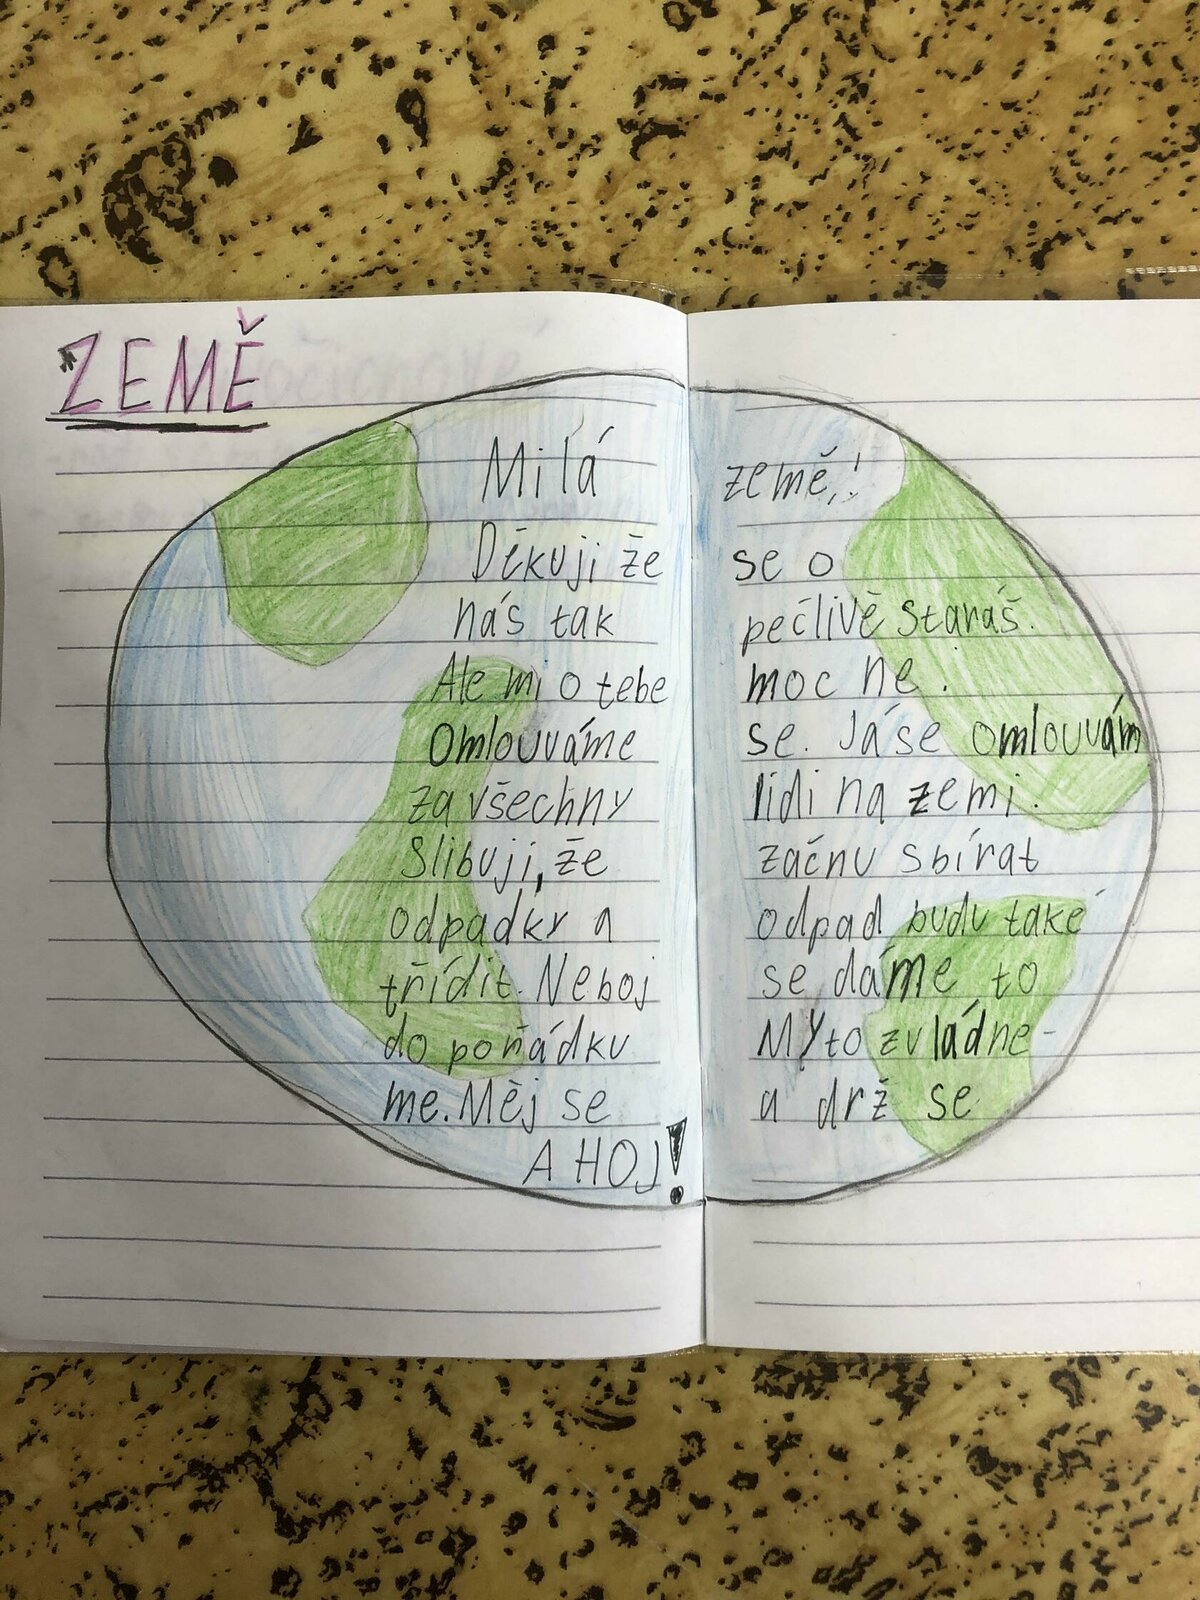 ZEMĚ
Milá země,!
Děkuji že se o
nás tak pečlivě staráš.
Ale mi o tebe moc ne.
Omlouváme se. Já se omlouvám
za všechny lidi na zemi.
Slibuji, že začnu sbírat
odpadky a odpad budu také
třídit. Neboj se dáme to
do pořádku My to zvládne-
me. Měj se a drž se
AHOJ!